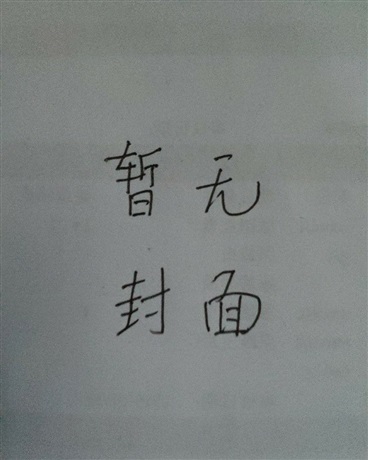 暂无
封面